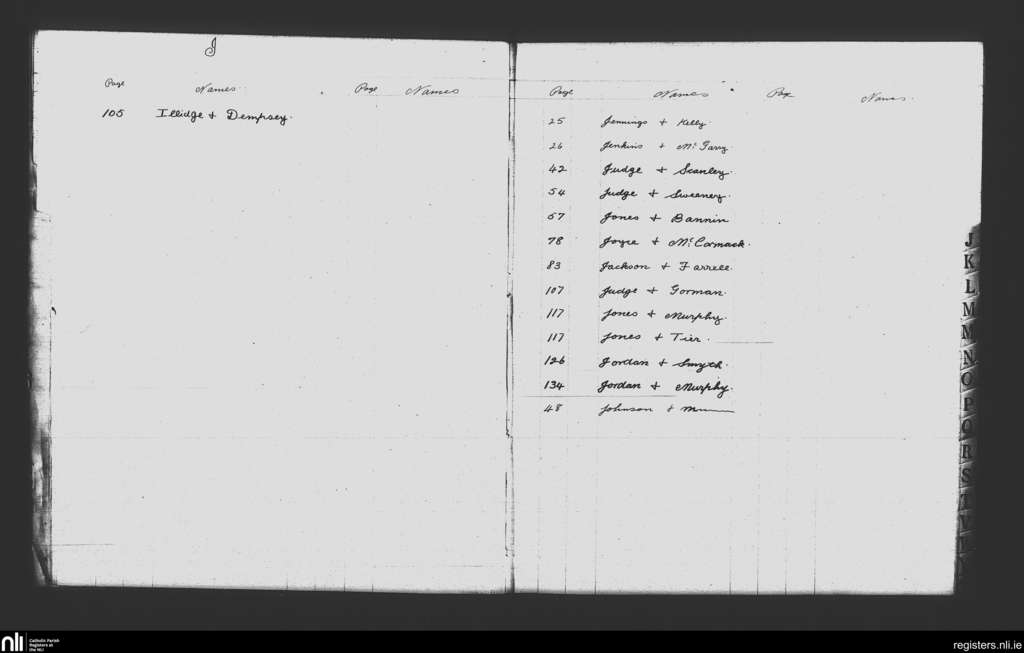 I
Page Names Page Names
105 Illidge + Dempsey.
Page Names Page Names.
25 Jennings + Kelly.
26 Jenkins + McGarry.
42 Judge + Scanley.
54 Judge + Sweeney.
57 Jones + Bannin
78 Joyce + McCormack.
83 Jackson + Farrell.
107 Judge + Gorman.
117 Jones + Murphy.
117 Jones + Tier.
126 Jordan + Smyth.
134 Jordan + Murphy.
48 Johnson +
J
K
L
M
M
N
O
P
Q
R
S
T
V
nli
Catholic Parish
Registers at
the NLI
registers.nli.ie